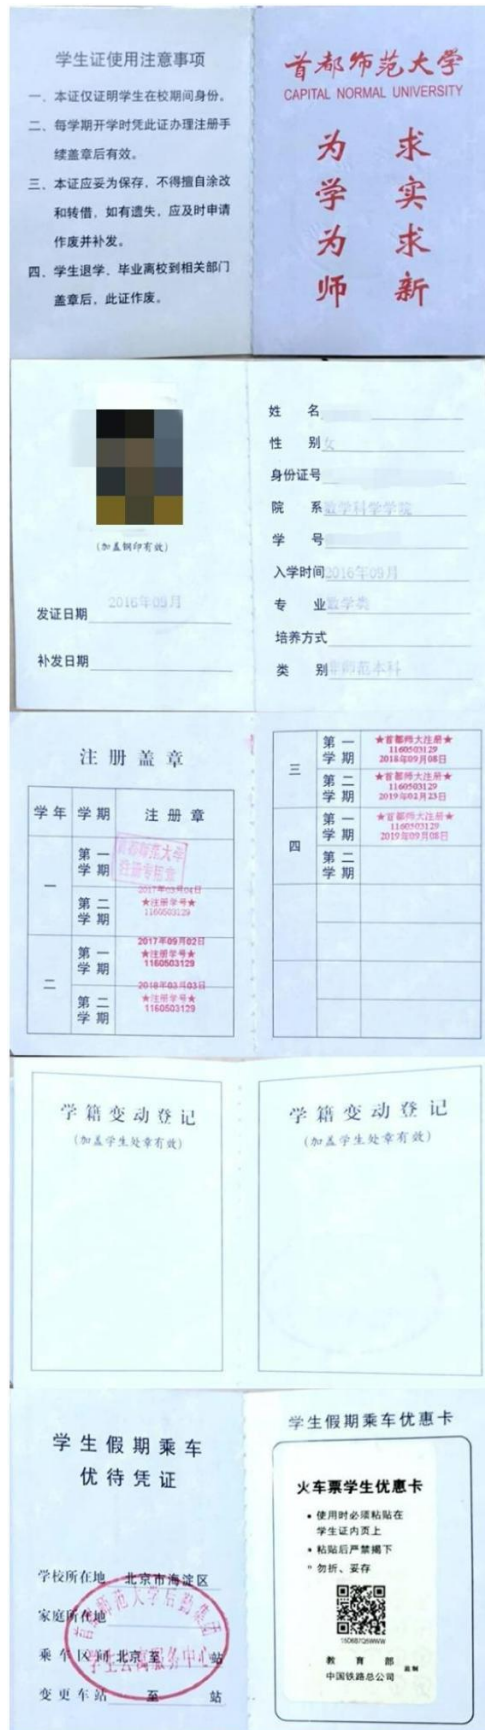 学生证使用注意事项
一、本证仅证明学生在校期间身份。
二、每学期开学时凭此证办理注册手
续盖章后有效。
三、本证应妥为保存，不得擅自涂改
和转借，如有遗失，应及时申请
作废并补发。
四、学生退学、毕业离校到相关部门
盖章后，此证作废。
首都师范大学
CAPITAL NORMAL UNIVERSITY
为学为师
求实求新
(加盖钢印有效)
发证日期 2016年09月
补发日期
姓名
性别 女
身份证号
院系 数学科学学院
学号
入学时间 2016年09月
专业 数学类
培养方式
类别 师范本科
注册盖章
学年 学期 注册章
一
第一学期
首都师范大学
注册专用章
第二学期
2017年03月04日
★注册学号★
1160503129
二
第一学期
2017年09月02日
★注册学号★
1160503129
第二学期
2018年03月03日
★注册学号★
1160503129
三
第一学期
★首都师大注册★
1160503129
2018年09月08日
第二学期
★首都师大注册★
1160503129
2019年02月23日
四
第一学期
★首都师大注册★
1160503129
2019年09月08日
第二学期
学籍变动登记
(加盖学生处章有效)
学籍变动登记
(加盖学生处章有效)
学生假期乘车
优待凭证
学校所在地 北京市海淀区
家庭所在地
乘车区间 北京 至 站
变更车站 至 站
首都师范大学后勤集团
学生公寓服务中心
学生假期乘车优惠卡
火车票学生优惠卡
• 使用时必须粘贴在
学生证内页上
• 粘贴后严禁揭下
• 勿折、妥存
教育部
中国铁路总公司 监制